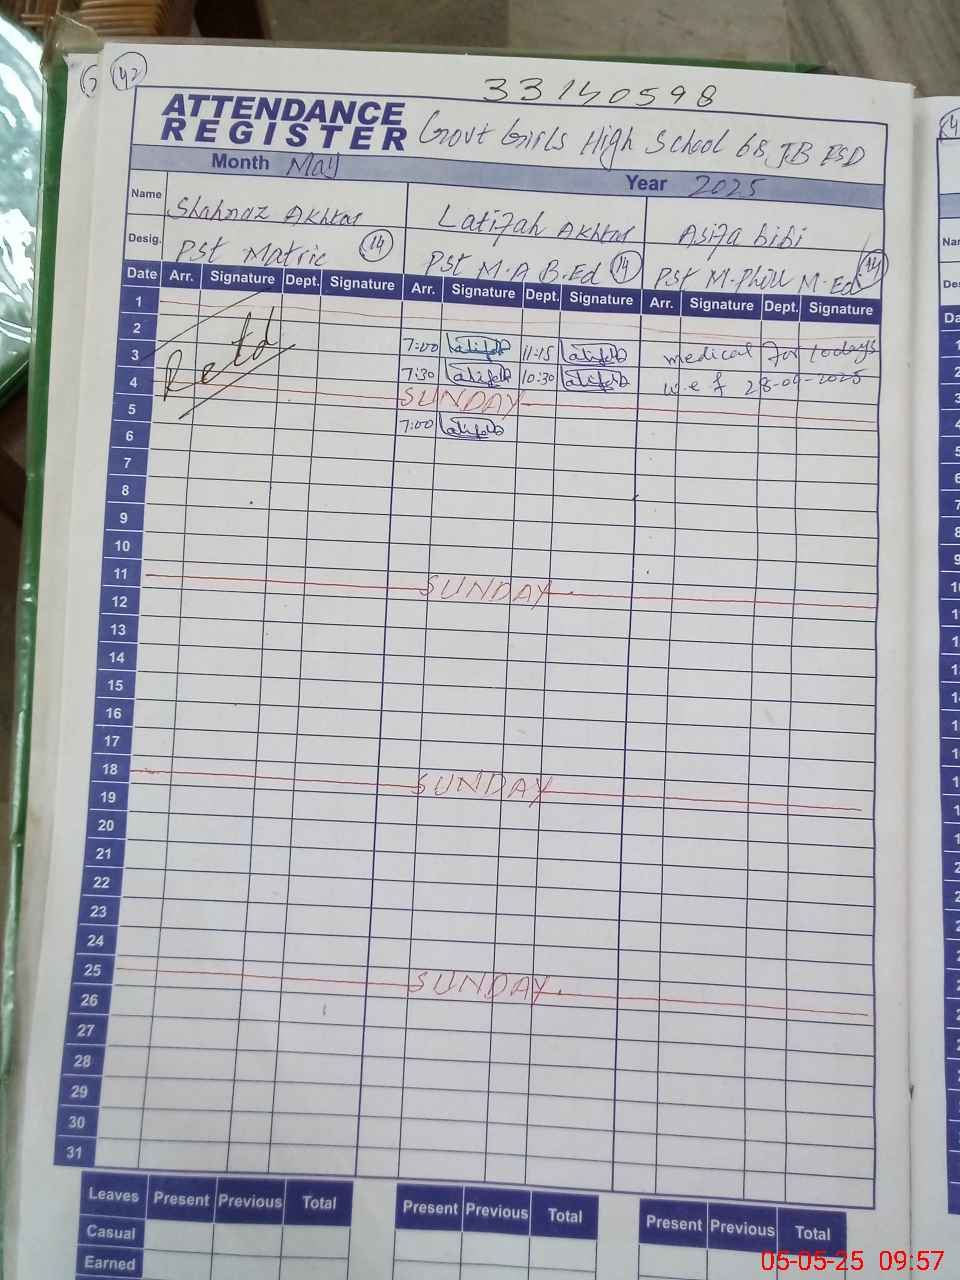 42
33140598
ATTENDANCE REGISTER Govt Girls High School 68 JB FSD
Month May Year 2025
Name Shahnaz Akhtar Latifah Akhtar Asifa bibi
Desig. Pst Matric 14 Pst M.A B.Ed 14 Pst M.Phill M.Ed 14
Date Arr. Signature Dept. Signature Arr. Signature Dept. Signature Arr. Signature Dept. Signature
1
2 Retd 7:00 Latifah 11:15 Latifah medical for 10 days
3 7:30 Latifah 10:30 Latifah w.e.f 28-04-2025
4 SUNDAY
5 7:00 Latifah
6
7
8
9
10
11 SUNDAY
12
13
14
15
16
17
18 SUNDAY
19
20
21
22
23
24
25 SUNDAY.
26
27
28
29
30
31
Leaves Present Previous Total Present Previous Total Present Previous Total
Casual
Earned
05-05-25 09:57